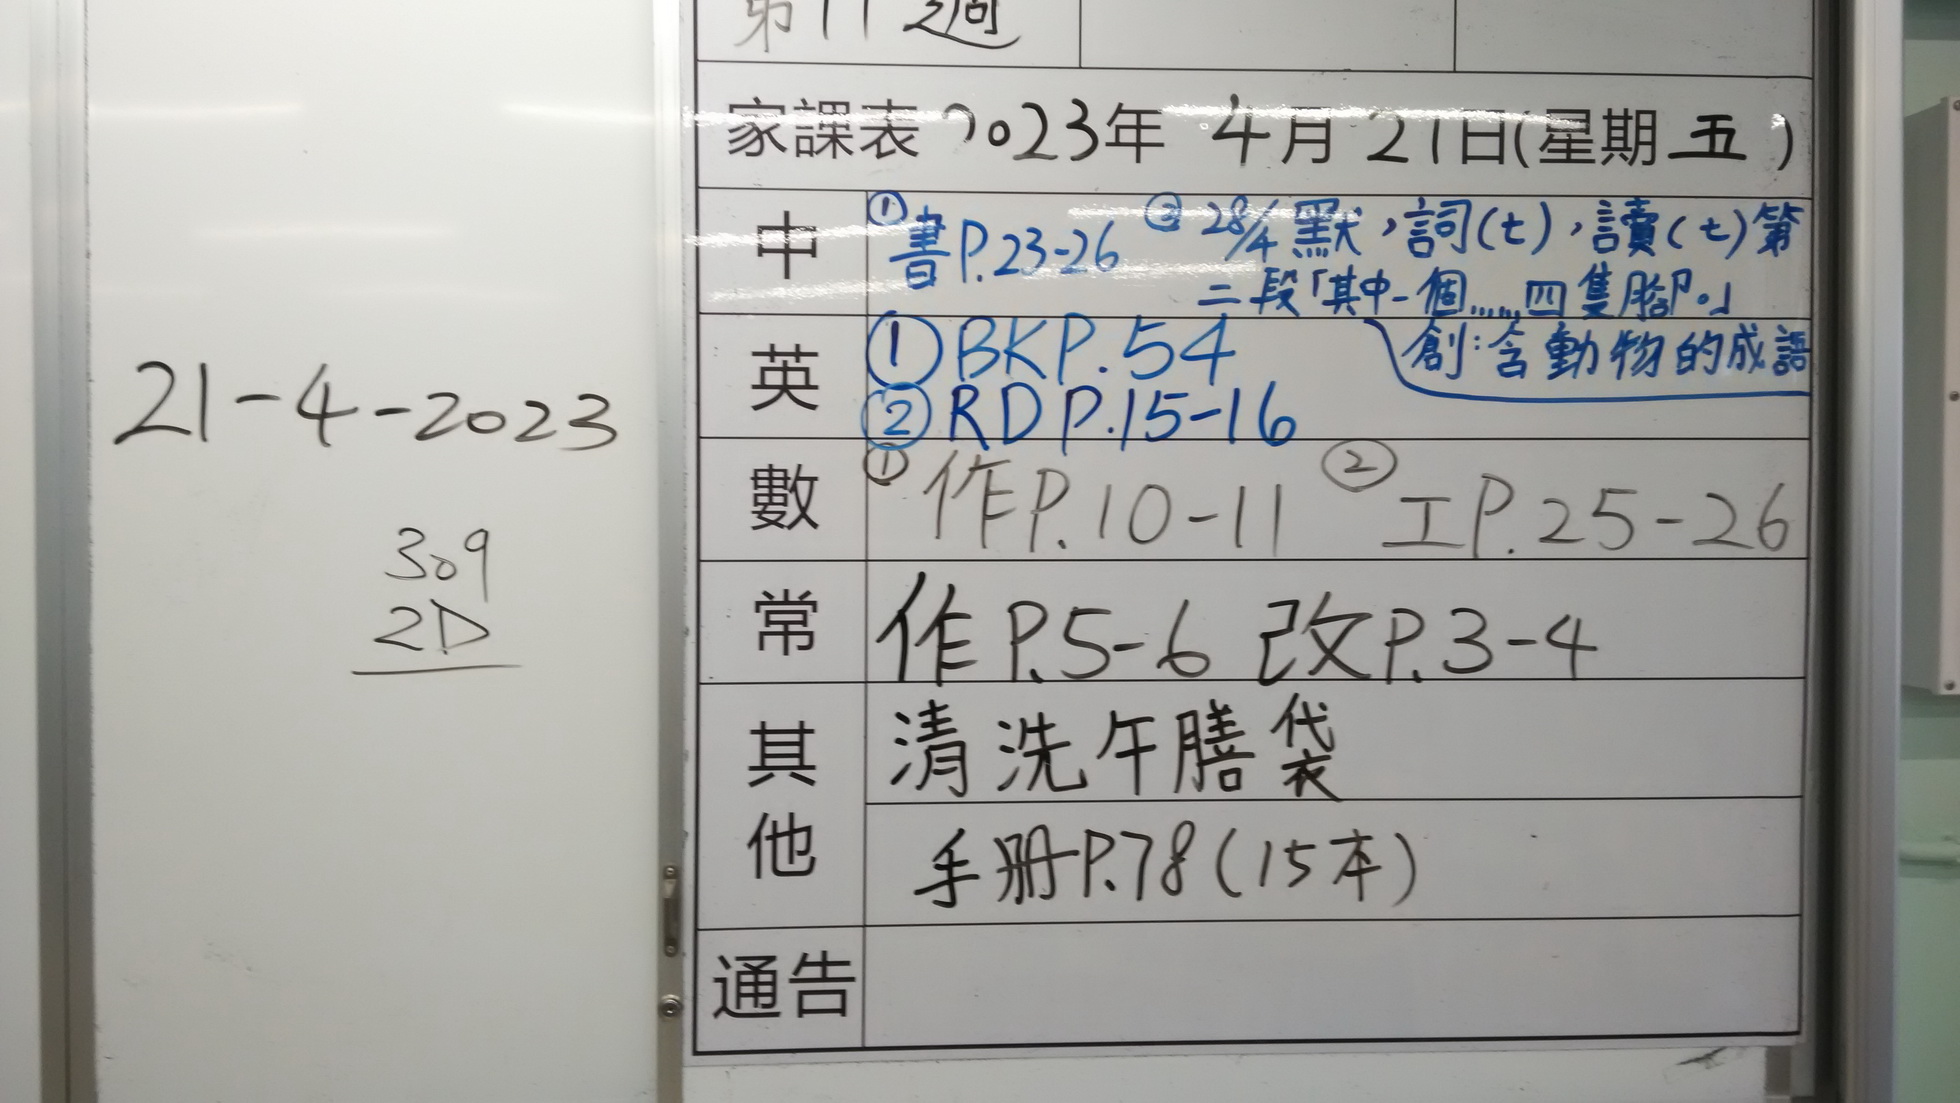 第11週
家課表 2023年 4月 21日(星期 五 )
中 ①書P.23-26 ② 28/4 默，詞(七)，讀(七)第
二段「其中一個......四隻腳。」
創:含動物的成語
英 ①BKP.54
②RD P.15-16
數 ①作P.10-11 ②工P.25-26
常 作P.5-6 改P.3-4
其他 清洗午膳袋
手册P.78(15本)
通告
21-4-2023
309
2D